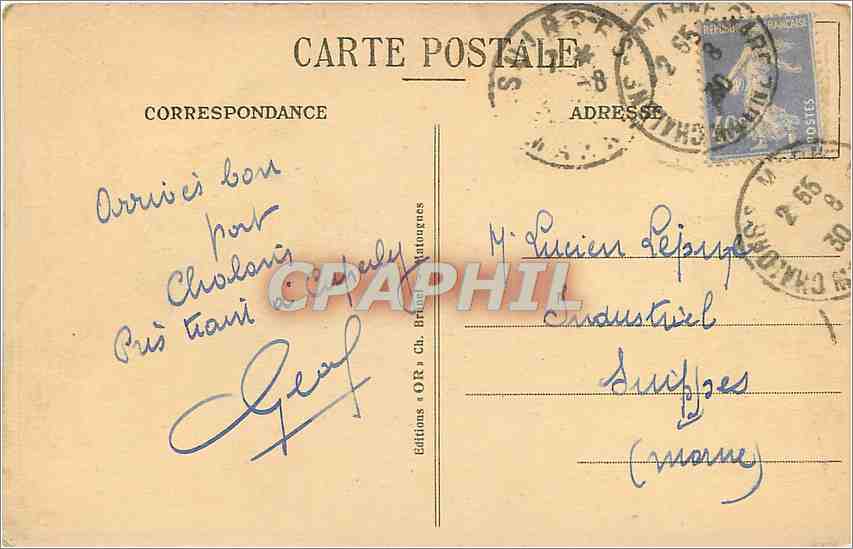 CARTE POSTALE
CORRESPONDANCE
ADRESSE
REPUB FRANÇAISE
40c
POSTES
SUIPPES
7 * -8
MARNE
CHALONS S MARNE GARE
2 65
8
30
CHALONS
2 65
8
30
Arrivés bon
port
Chalons
Pris train à Cuperly
Geo
Editions « OR » Ch. Brunel Matougues
CPAPHIL
Mr Lucien Lepuye
Industriel
Suippes
(Marne)